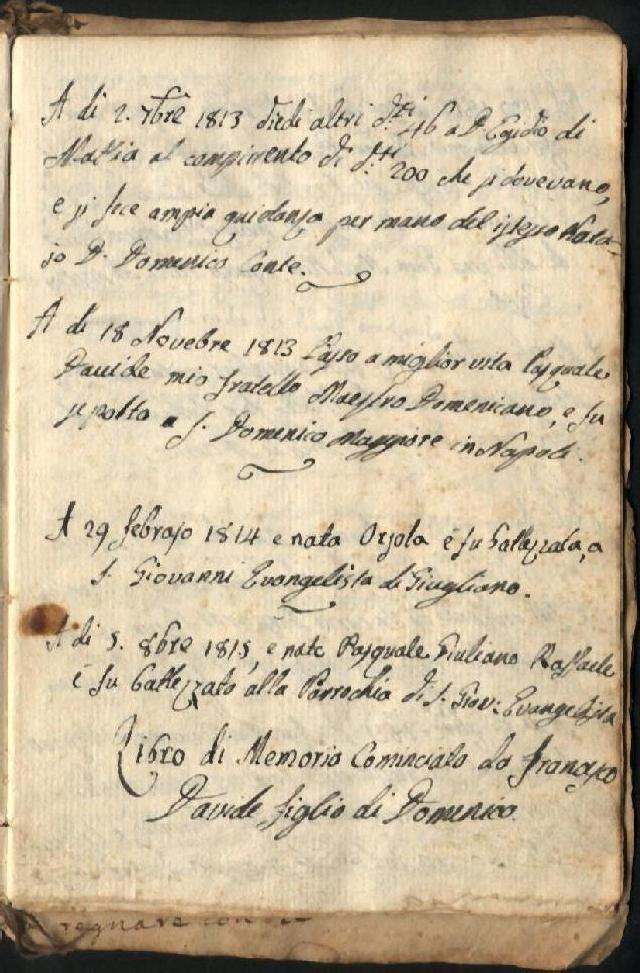 A di 2. 7bre 1813 diedi altri d.ti 46 a D. Egidio di
Mattia al compimento di d.ti 200 che si dovevano,
e si fece ampia quidanza per mano del istesso Nota-
jo D. Domenico Conte.
A di 18 Novebre 1813 Passo a miglior vita Pasquale
Davide mio fratello Maestro Domenicano, e fu
sepolto a S. Domenico Maggiore in Napoli.
A 29 febrajo 1814 e nata Orsola e fu battezzata, a
S. Giovanni Evangelista di Giugliano.
A di 5. 8bre 1815, e nato Pasquale Giuliano Raffaele
e fu battezzato alla Parrochia di S. Giov: Evangelista
Libro di Memorio Cominciato da Francesco
Davide figlio di Domenico
regnare con